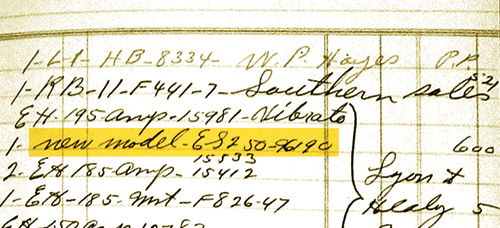 1-L-1- HB-8334- W. P. Hayes P.P.
1-RB-11-F441-7- Southern sales 5-21
EH-195 Amp-15981-Vibrato
1- new model-ES250-96190 600
15533
2-EH 185 Amp-15412 Lyon &
1-EH-185-Mt-F826-47 Healy 5